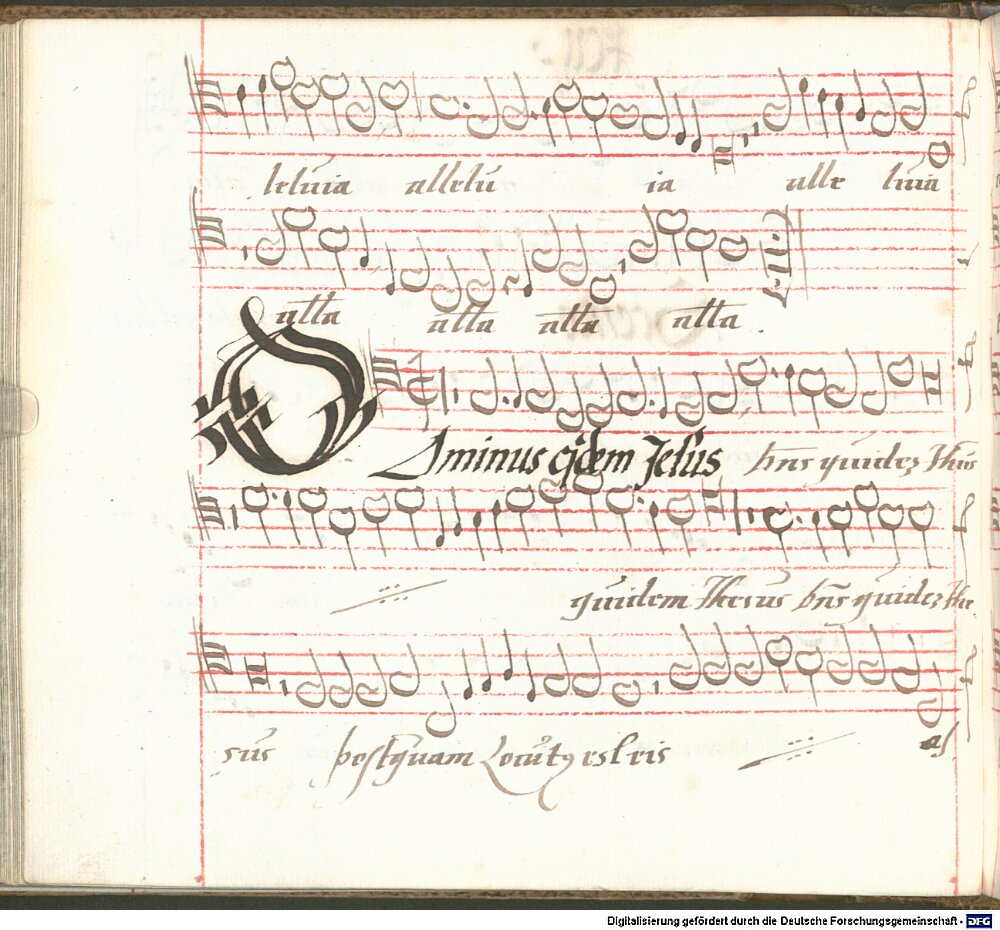 leluia allelu ia alle luia
alla alla alla alla .
Dominus q̃dem Jesus dñs quidez Ihus
quidem Ihesus dñs quidez Ihe
sus postquam locutꝯ est eis as
Digitalisierung gefördert durch die Deutsche Forschungsgemeinschaft - DFG